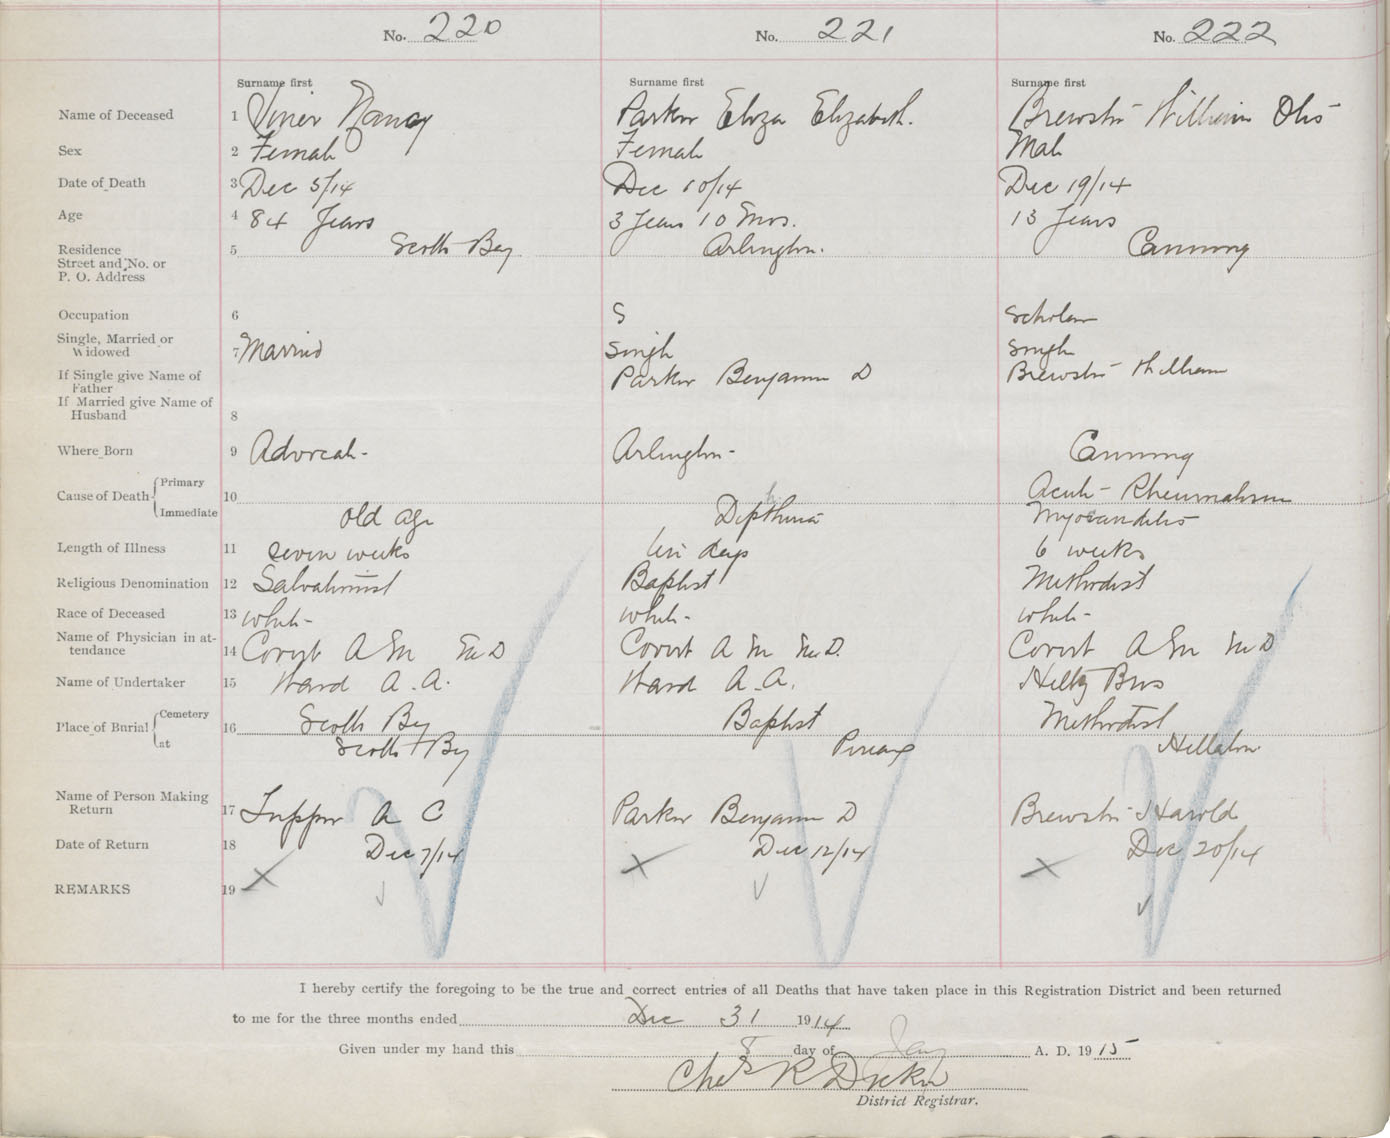 No. 220 No. 221 No. 222
Surname first Surname first Surname first
Name of Deceased 1 Nancy Parker Eliza Elizabeth. Brewster William Otis
Sex 2 Female Female Male
Date of Death 3 Dec 5/14 Dec 10/14 Dec 19/14
Age 4 84 Years 3 Years 10 Mos. 13 Years
Residence 5 Scotts Bay Arlington. Canning
Street and No. or
P. O. Address
Occupation 6 S Scholar
Single, Married or
Widowed 7 Married Single Single
If Single give Name of
Father Parker Benjamin D Brewster William
If Married give Name of
Husband 8
Where Born 9 Advocate Arlington Canning
Cause of Death Primary 10 Acute Rheumatism
Immediate old age Diptheria Myocarditis
Length of Illness 11 seven weeks ten days 6 weeks
Religious Denomination 12 Salvationist Baptist Methodist
Race of Deceased 13 white white white
Name of Physician in at-
tendance 14 Covert A M M D Covert A M M.D. Covert A M M D
Name of Undertaker 15 Ward A. A. Ward A. A. Hiltz Bros
Place of Burial Cemetery 16 Scotts Bay Baptist Methodist
at Scotts Bay Pereaux Hillaton
Name of Person Making
Return 17 Tupper A C Parker Benjamin D Brewster Harold
Date of Return 18 Dec 7/14 Dec 12/14 Dec 20/14
REMARKS 19
I hereby certify the foregoing to be the true and correct entries of all Deaths that have taken place in this Registration District and been returned
to me for the three months ended Dec 31 1914
Given under my hand this 8 day of Jany A. D. 1915
Chas R
District Registrar.